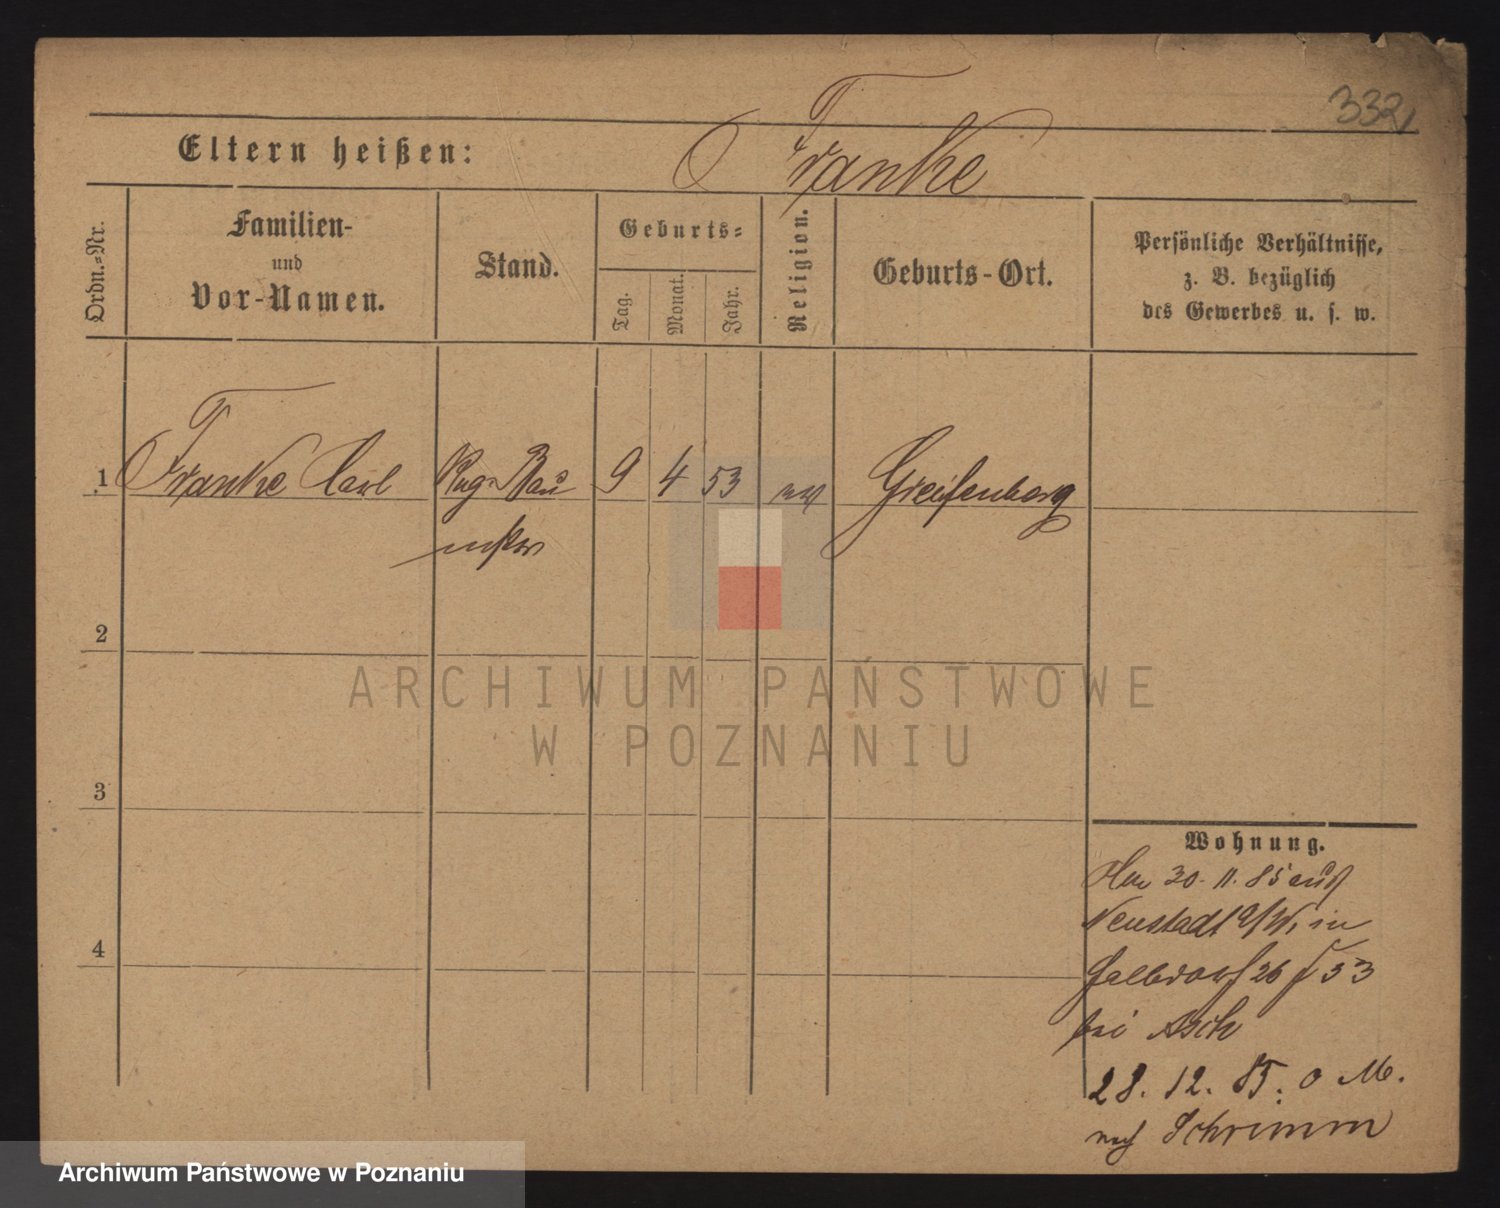 332
Eltern heißen: Franke
Ordn.-Nr.
Familien-
und
Vor-Namen.
Stand.
Geburts-
Tag.
Monat.
Jahr.
Religion.
Geburts-Ort.
Persönliche Verhältnisse,
z. B. bezüglich
des Gewerbes u. s. w.
1 Franke Carl Bau 9 4 53 Greifenberg
2
3
4
ARCHIWUM PAŃSTWOWE
W POZNANIU
Wohnung.
30. 11. 85 aus
Neustadt in
Halbdorf 26 53
bei
28. 12. 85. o M.
nach Schrimm
Archiwum Państwowe w Poznaniu